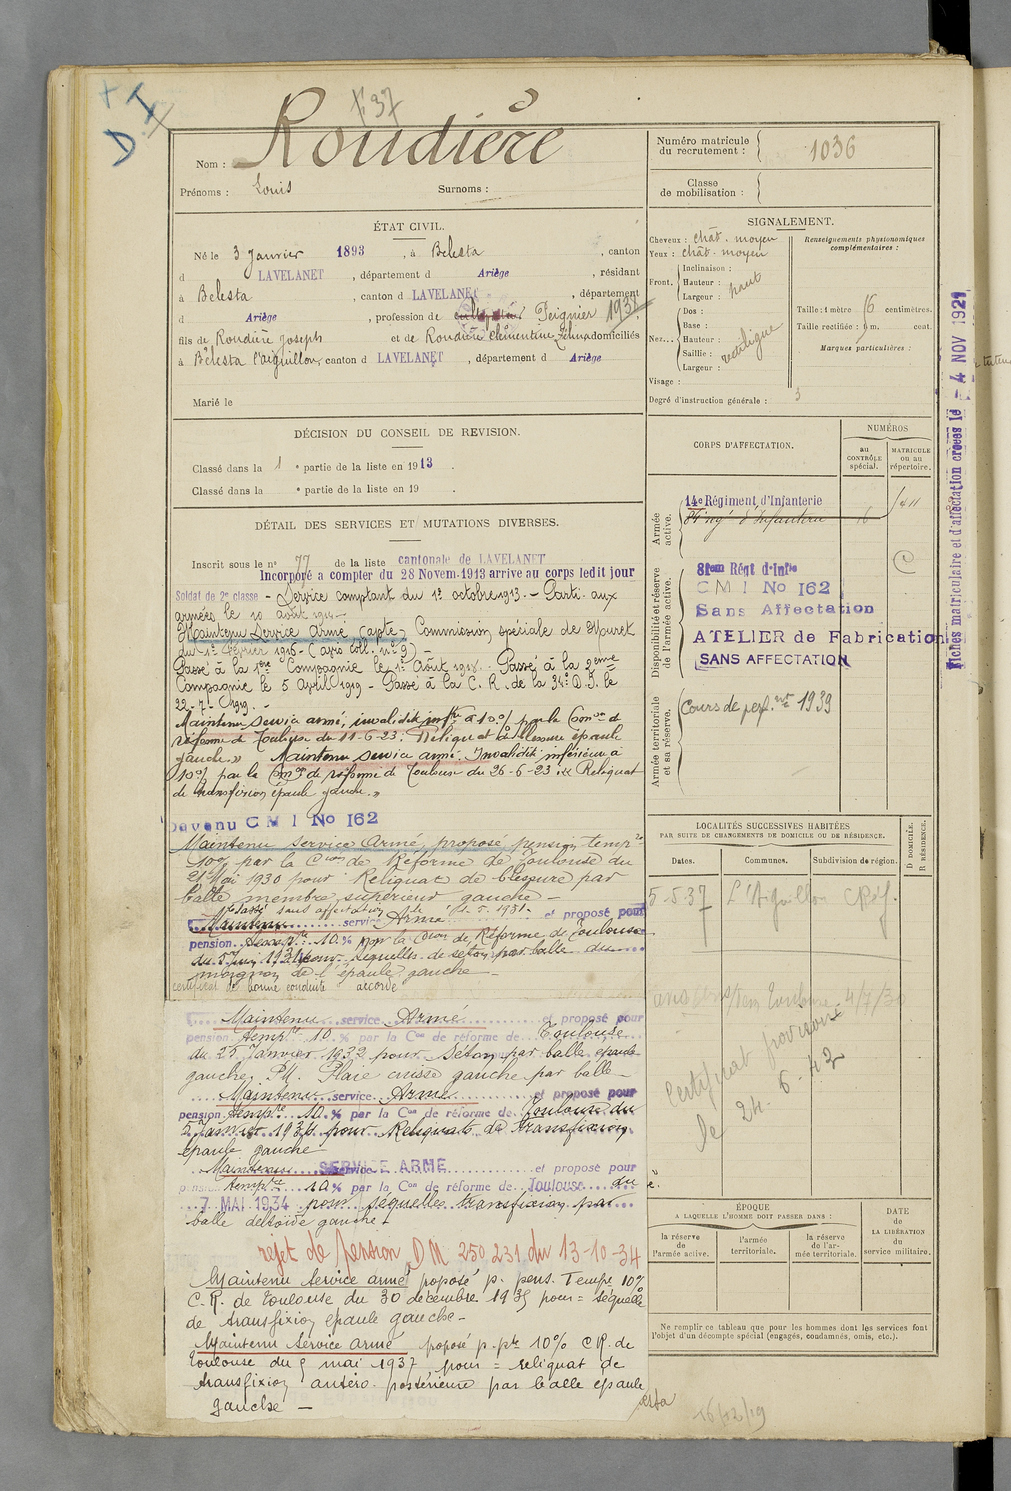 F 37
D I
Nom : Roudière
Prénoms : Louis Surnoms :
Numéro matricule du recrutement : 1036
Classe de mobilisation :
ÉTAT CIVIL.
Né le 3 Janvier 1893, à Belesta, canton
d LAVELANET, département d Ariège, résidant
à Belesta, canton d LAVELANET, département
d Ariège, profession de Peignier 1938
fils de Roudière Joseph et de Roudière Clémentine Zelma domiciliés
à Belesta l'aiguillon, canton d LAVELANET, département d Ariège
Marié le
DÉCISION DU CONSEIL DE REVISION.
Classé dans la 1 e partie de la liste en 1913.
Classé dans la e partie de la liste en 19 .
DÉTAIL DES SERVICES ET MUTATIONS DIVERSES.
Inscrit sous le n° 77 de la liste cantonale de LAVELANET
Incorporé a compter du 28 Novem. 1913 arrive au corps ledit jour
Soldat de 2e classe - Service comptant du 1er octobre 1913. - Parti aux
armées le 10 août 1914 -
Maintenu Service Armé (apte) Commission spéciale de Muret
du 1er février 1916 - (avis coll. n° 9) -
Passé à la 1ère Compagnie le 1er Août 1918. Passé à la 2ème
Compagnie le 5 April 1919 - Passé à la C. R. de la 34e D. I. le
22-7-1919. -
Maintenu service armé, invalidité infre à 10% par la Comon de
réforme de Toulouse du 11-6-23; Reliquat de blessure épaule
gauche." Maintenu service armé. Invalidité inférieure à
10% par la Comon de réforme de Toulouse du 26-6-23 : « Reliquat
de transfixion épaule gauche. »
Devenu C M I No 162
Maintenu Service Armé, proposé pension tempre
10% par la Cion de Réforme de Toulouse du
21 Mai 1930 pour : Reliquat de blessure par
balle membre supérieur gauche -
Classé sans affectation le 1.5.1931.
Maintenu service Armé et proposé pour
pension tempre 10.% par la Cion de Réforme de Toulouse
du 5 Juin 1931 pour sequelles de séton par balle du
moignon de l'épaule gauche -
certificat de bonne conduite accordé
Maintenu service Armé et proposé pour
pension tempre 10.% par la Con de réforme de Toulouse
du 25 Janvier 1932 pour Séton par balle epaule
gauche. P.M. Plaie cuisse gauche par balle -
Maintenu service Armé et proposé pour
pension tempre 10.% par la Con de réforme de Toulouse du
5 Janvier 1934 pour Reliquats de transfixion
épaule gauche
Maintenu service SERVICE ARMÉ et proposé pour
pension tempre 10% par la Con de réforme de Toulouse du
7 MAI 1934 pour séquelles transfixion par
balle deltoïde gauche -
rejet de pension D M 250,231 du 13-10-34
Maintenu Service armé proposé p. pens. Tempre 10%
C. R. de Toulouse du 30 décembre 1935 pour = séquelle
de transfixion epaule gauche -
Maintenu Service armé proposé p. pte 10% C R. de
Toulouse du 5 mai 1937 pour = reliquat de
transfixion antéro-postérieure par balle epaule
gauche -
SIGNALEMENT.
Cheveux : chât. moyen
Yeux : chât. moyen
Front. Inclinaison :
Hauteur : haut
Largeur :
Nez. Dos :
Base :
Hauteur : rectiligne
Saillie :
Largeur :
Visage :
Degré d'instruction générale : 3
Renseignements physionomiques complémentaires :
Taille : 1 mètre 6 centimètres.
Taille rectifiée : m. cent.
Marques particulières :
CORPS D'AFFECTATION.
NUMÉROS
AU CONTRÔLE spécial.
MATRICULE ou au répertoire.
Armée active.
14e Régiment d'Infanterie
C
Disponibilité et réserve de l'armée active.
81em Régt d'Infie
C M I No 162
Sans Affectation
ATELIER de Fabrication
SANS AFFECTATION
Armée territoriale et sa réserve.
Cours de perf.nt 1939
LOCALITÉS SUCCESSIVES HABITÉES
PAR SUITE DE CHANGEMENTS DE DOMICILE OU DE RÉSIDENCE.
Dates. Communes. Subdivision de région. D DOMICILE. R RÉSIDENCE.
5-5-37 L'Aiguillon
4/7/30
Certificat provisoire
le 24-6-42
ÉPOQUE
A LAQUELLE L'HOMME DOIT PASSER DANS :
la réserve de l'armée active.
l'armée territoriale.
la réserve de l'armée territoriale.
DATE de LA LIBÉRATION du service militaire.
Ne remplir ce tableau que pour les hommes dont les services font
l'objet d'un décompte spécial (engagés, condamnés, omis, etc.).
16/12/19
Fiches matriculaire et d'affectation créées le - 4 NOV 1929